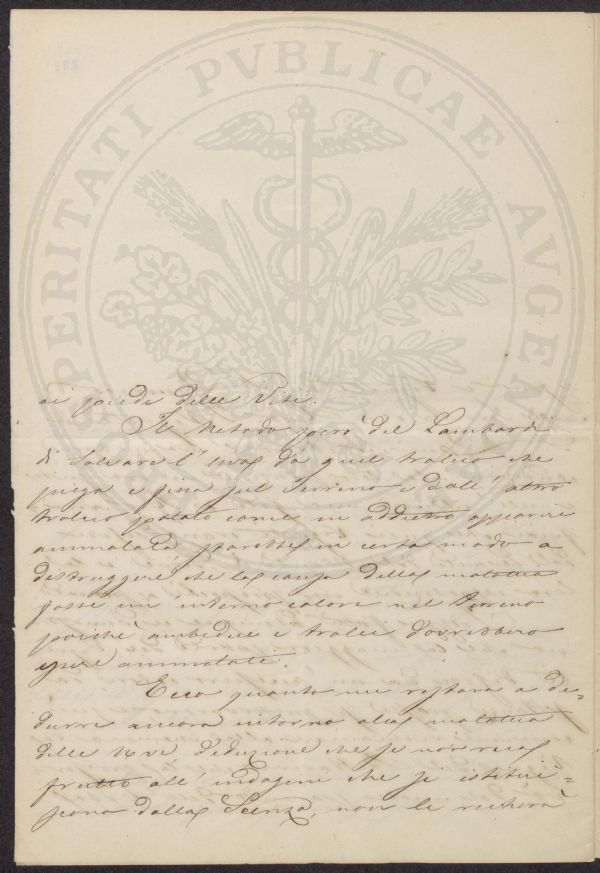 PROSPERITATI PVBLICAE AVGENDAE
ai piedi delle Viti.
Il Metodo però del Lambardi
di salvare l'uva da quel tralcio che
piega e fissa sul Terreno e dall'altro
tralcio potato come in addietro apparire
ammalata parebbe in certo modo a
distruggere che la causa della malattia
fosse un'interno calore nel terreno
poichè ambedue i tralci dovrebbero
essere ammalati.
Ecco quanto mi restava a de=
durre ancora intorno alla malattia
delle Uve deduzione che se non reca
frutto all'indagini che si istitui=
scono dalla Scienza, non le recherà